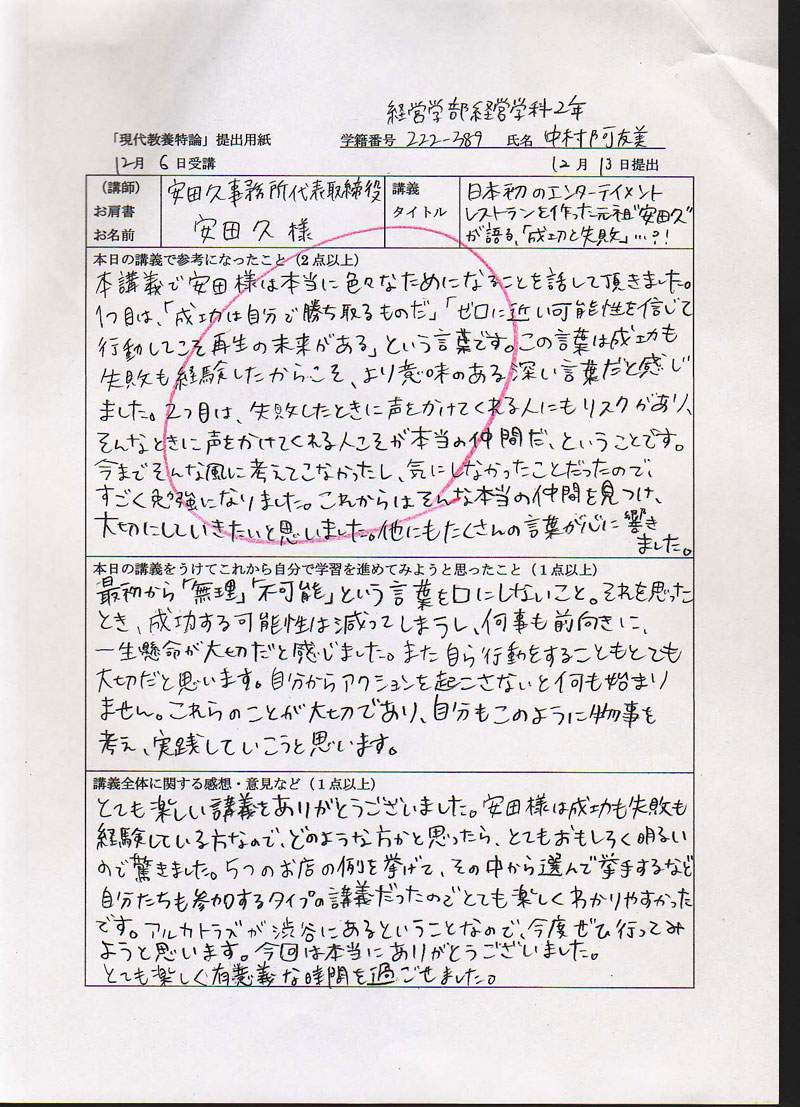 経営学部経営学科2年
「現代教養特論」提出用紙 学籍番号 222-289 氏名 中村阿友美
12月 6日受講 12月 13日提出
(講師) 安田久事務所代表取締役 講義 日本初のエンターテイメント
お肩書 タイトル レストランを作った元祖"安田久"
お名前 安田久様 が語る、「成功と失敗」…?!
本日の講義で参考になったこと(2点以上)
本講義で安田様は本当に色々なためになることを話して頂きました。
1つ目は、「成功は自分で勝ち取るものだ」「ゼロに近い可能性を信じて
行動してこそ再生の未来がある」という言葉です。この言葉は成功も
失敗も経験したからこそ、より意味のある深い言葉だと感じ
ました。2つ目は、失敗したときに声をかけてくれる人にもリスクがあり、
そんなときに声をかけてくれる人こそが本当の仲間だ、ということです。
今までそんな風に考えてこなかったし、気にしなかったことだったので、
すごく勉強になりました。これからはそんな本当の仲間を見つけ、
大切にしいきたいと思いました。他にもたくさんの言葉が心に響き
ました。
本日の講義をうけてこれから自分で学習を進めてみようと思ったこと(1点以上)
最初から「無理」「不可能」という言葉を口にしないこと。それを思った
とき、成功する可能性は減ってしまうし、何事も前向きに、
一生懸命が大切だと感じました。また自ら行動をすることもとても
大切だと思います。自分からアクションを起こさないと何も始まり
ません。これらのことが大切であり、自分もこのように物事を
考え、実践していこうと思います。
講義全体に関する感想・意見など(1点以上)
とても楽しい講義をありがとうございました。安田様は成功も失敗も
経験している方なので、どのような方かと思ったら、とてもおもしろく明るい
ので驚きました。5つのお店の例を挙げて、その中から選んで挙手するなど
自分たちも参加するタイプの講義だったのでとても楽しくわかりやすかった
です。アルカトラズが渋谷にあるということなので、今度ぜひ行ってみ
ようと思います。今回は本当にありがとうございました。
とても楽しく有意義な時間を過ごせました。